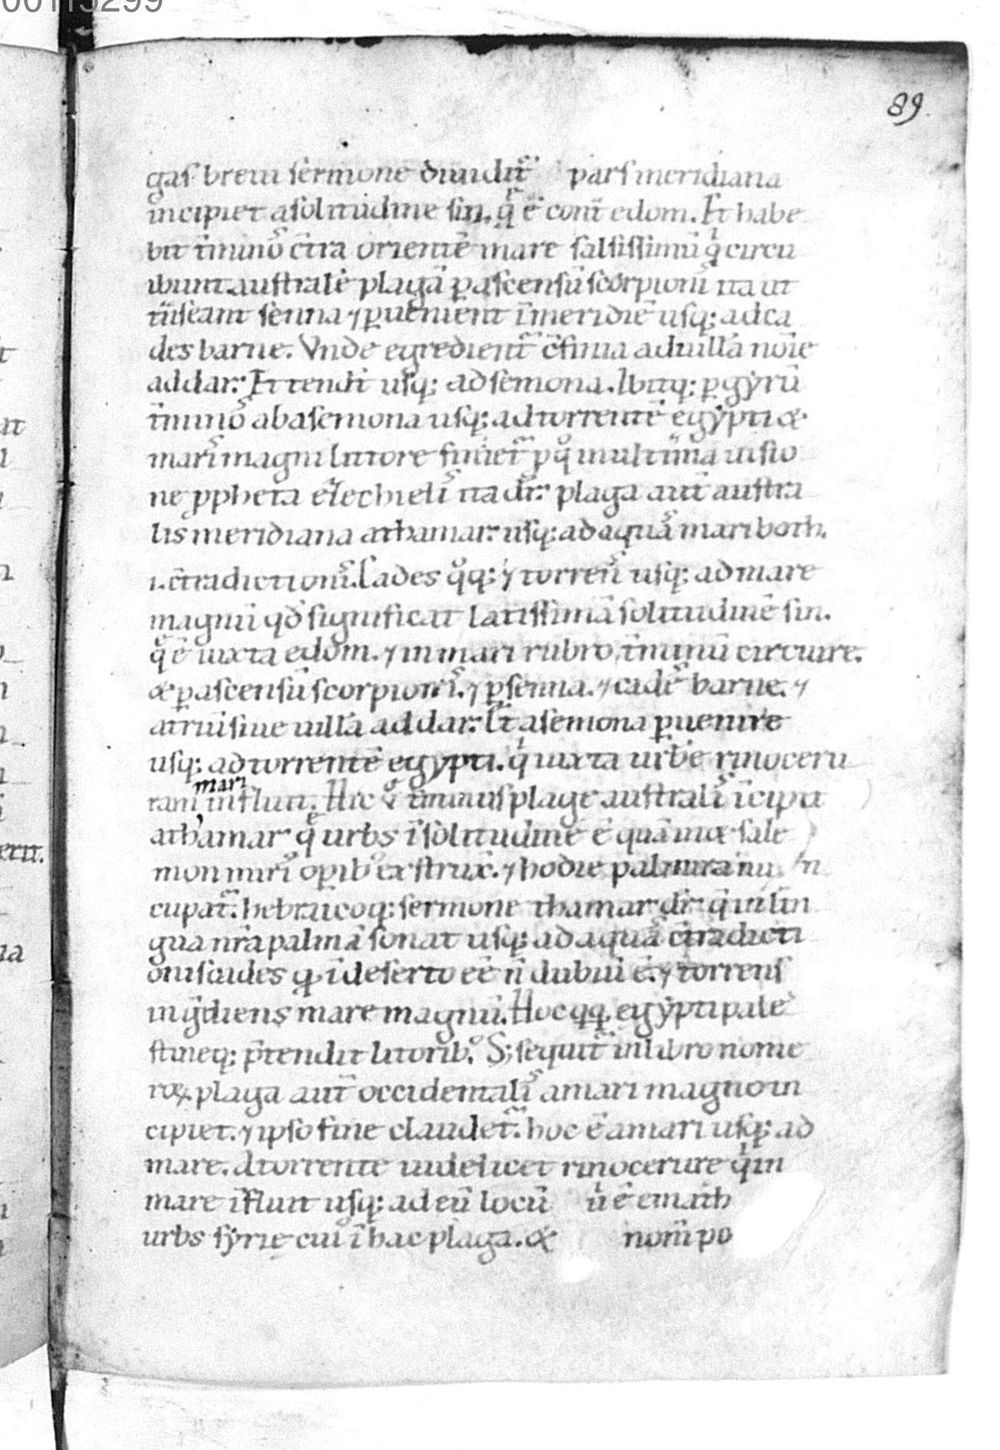 00115299
89.
gas brevi sermone dividit᷒ pars meridiana
incipiet a solitudine sin, q̄ ē cont̄ edom. Et habe
bit t̄minō c̄tra orientē mare salsissimū q̄ circu
ibunt australē plagā p ascensū scorpionū ita ut
t̄nseant senna ⁊ puenient ī meridiē usq; ad ca
des barne. Vnde egredient̄ c̄finia ad uillā noīe
addar. Et tendt̄ usq; ad semona. Ibitq; p gyrū
t̄minō ab asemona usq; ad torrentē egypti &
maris magni littore finiet̄ p q̄ in ultima uisio
ne ppheta ezechieli ita dr̄: plaga aut̄ austra
lis meridiana athamar usq; ad aquā mariboth.
.i. c̄tradictionis. Cades qq; ⁊ torrens usq; ad mare
magnū qd̄ significat latissimā solitudinē sin.
q̄ ē iuxta edom. ⁊ in mari rubro t̄minū circuire.
& p ascensū scorpionis. ⁊ p senna. ⁊ cades barne. ⁊
atrii siue uillā addar. Et asemona puenire
usq; ad torrentē egypti. q̄ iuxta urbē rinoceru
mari
ram influit. Hic ḡ t̄minus plage australis īcipit
athamar q̄ urbs ī solitudine ē quā in & sale
mon miris opib; exstrux̄. ⁊ hodie palmira nu n
cupat̄. hebraicoq; sermone thamar dr̄ q̄ in lin
gua nr̄a palmā sonat usq; ad aquā c̄tradicti
onis cades q̄ ī deserto eē n̄ dubiū ē. ⁊ torrens
ingdiens mare magnū. Hoc qq. egypti pale
stineq; p̄tendit litorib; S; sequit̄ in libro nume
roꝝ. plaga aut̄ occidentalis a mari magno in
cipiet. ⁊ ipso fine claudet̄. hoc ē a mari usq; ad
mare. A torrente uidelicet rinocerure q̄ in
mare īfluit usq; ad eū locū ē emath
urbs syrie cui ī hac plaga. & nom̄ po